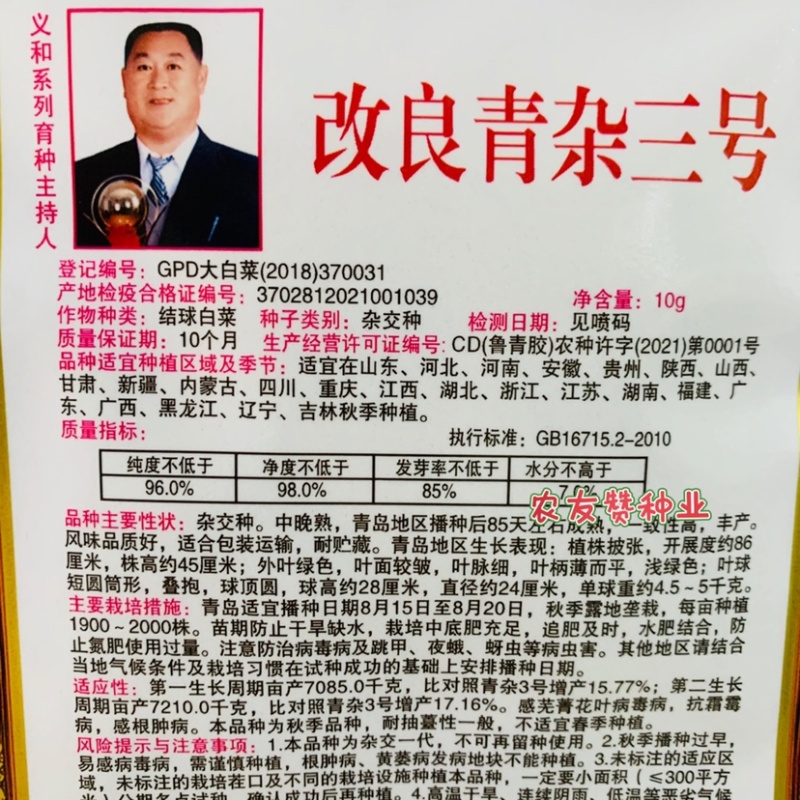 义和系列育种主持人
改良青杂三号
登记编号：GPD大白菜(2018)370031
产地检疫合格证编号：3702812021001039 净含量：10g
作物种类：结球白菜 种子类别：杂交种 检测日期：见喷码
质量保证期：10个月 生产经营许可证编号：CD(鲁青胶)农种许字(2021)第0001号
品种适宜种植区域及季节：适宜在山东、河北、河南、安徽、贵州、陕西、山西、
甘肃、新疆、内蒙古、四川、重庆、江西、湖北、浙江、江苏、湖南、福建、广
东、广西、黑龙江、辽宁、吉林秋季种植。
质量指标： 执行标准：GB16715.2-2010
纯度不低于 净度不低于 发芽率不低于 水分不高于
96.0% 98.0% 85%
农友赞种业
品种主要性状：杂交种。中晚熟，青岛地区播种后85天左右成熟，一致性高，丰产。
风味品质好，适合包装运输，耐贮藏。青岛地区生长表现：植株披张，开展度约86
厘米，株高约45厘米；外叶绿色，叶面较皱，叶脉细，叶柄薄而平，浅绿色；叶球
短圆筒形，叠抱，球顶圆，球高约28厘米，直径约24厘米，单球重约4.5~5千克。
主要栽培措施：青岛适宜播种日期8月15日至8月20日，秋季露地垄栽，每亩种植
1900~2000株。苗期防止干旱缺水，栽培中底肥充足，追肥及时，水肥结合，防
止氮肥使用过量。注意防治病毒病及跳甲、夜蛾、蚜虫等病虫害。其他地区请结合
当地气候条件及栽培习惯在试种成功的基础上安排播种日期。
适应性：第一生长周期亩产7085.0千克，比对照青杂3号增产15.77%；第二生长
周期亩产7210.0千克，比对照青杂3号增产17.16%。感芜菁花叶病毒病，抗霜霉
病，感根肿病。本品种为秋季品种，耐抽薹性一般，不适宜春季种植。
风险提示与注意事项：1.本品种为杂交一代，不可再留种使用。2.秋季播种过早，
易感病毒病，需谨慎种植，根肿病、黄萎病发病地块不能种植。3.未标注的适应区
域，未标注的栽培茬口及不同的栽培设施种植本品种，一定要小面积（≤300平方
米）分期多点试种，确认成功后再种植。4.高温干旱、连续阴雨、低温等恶劣气候